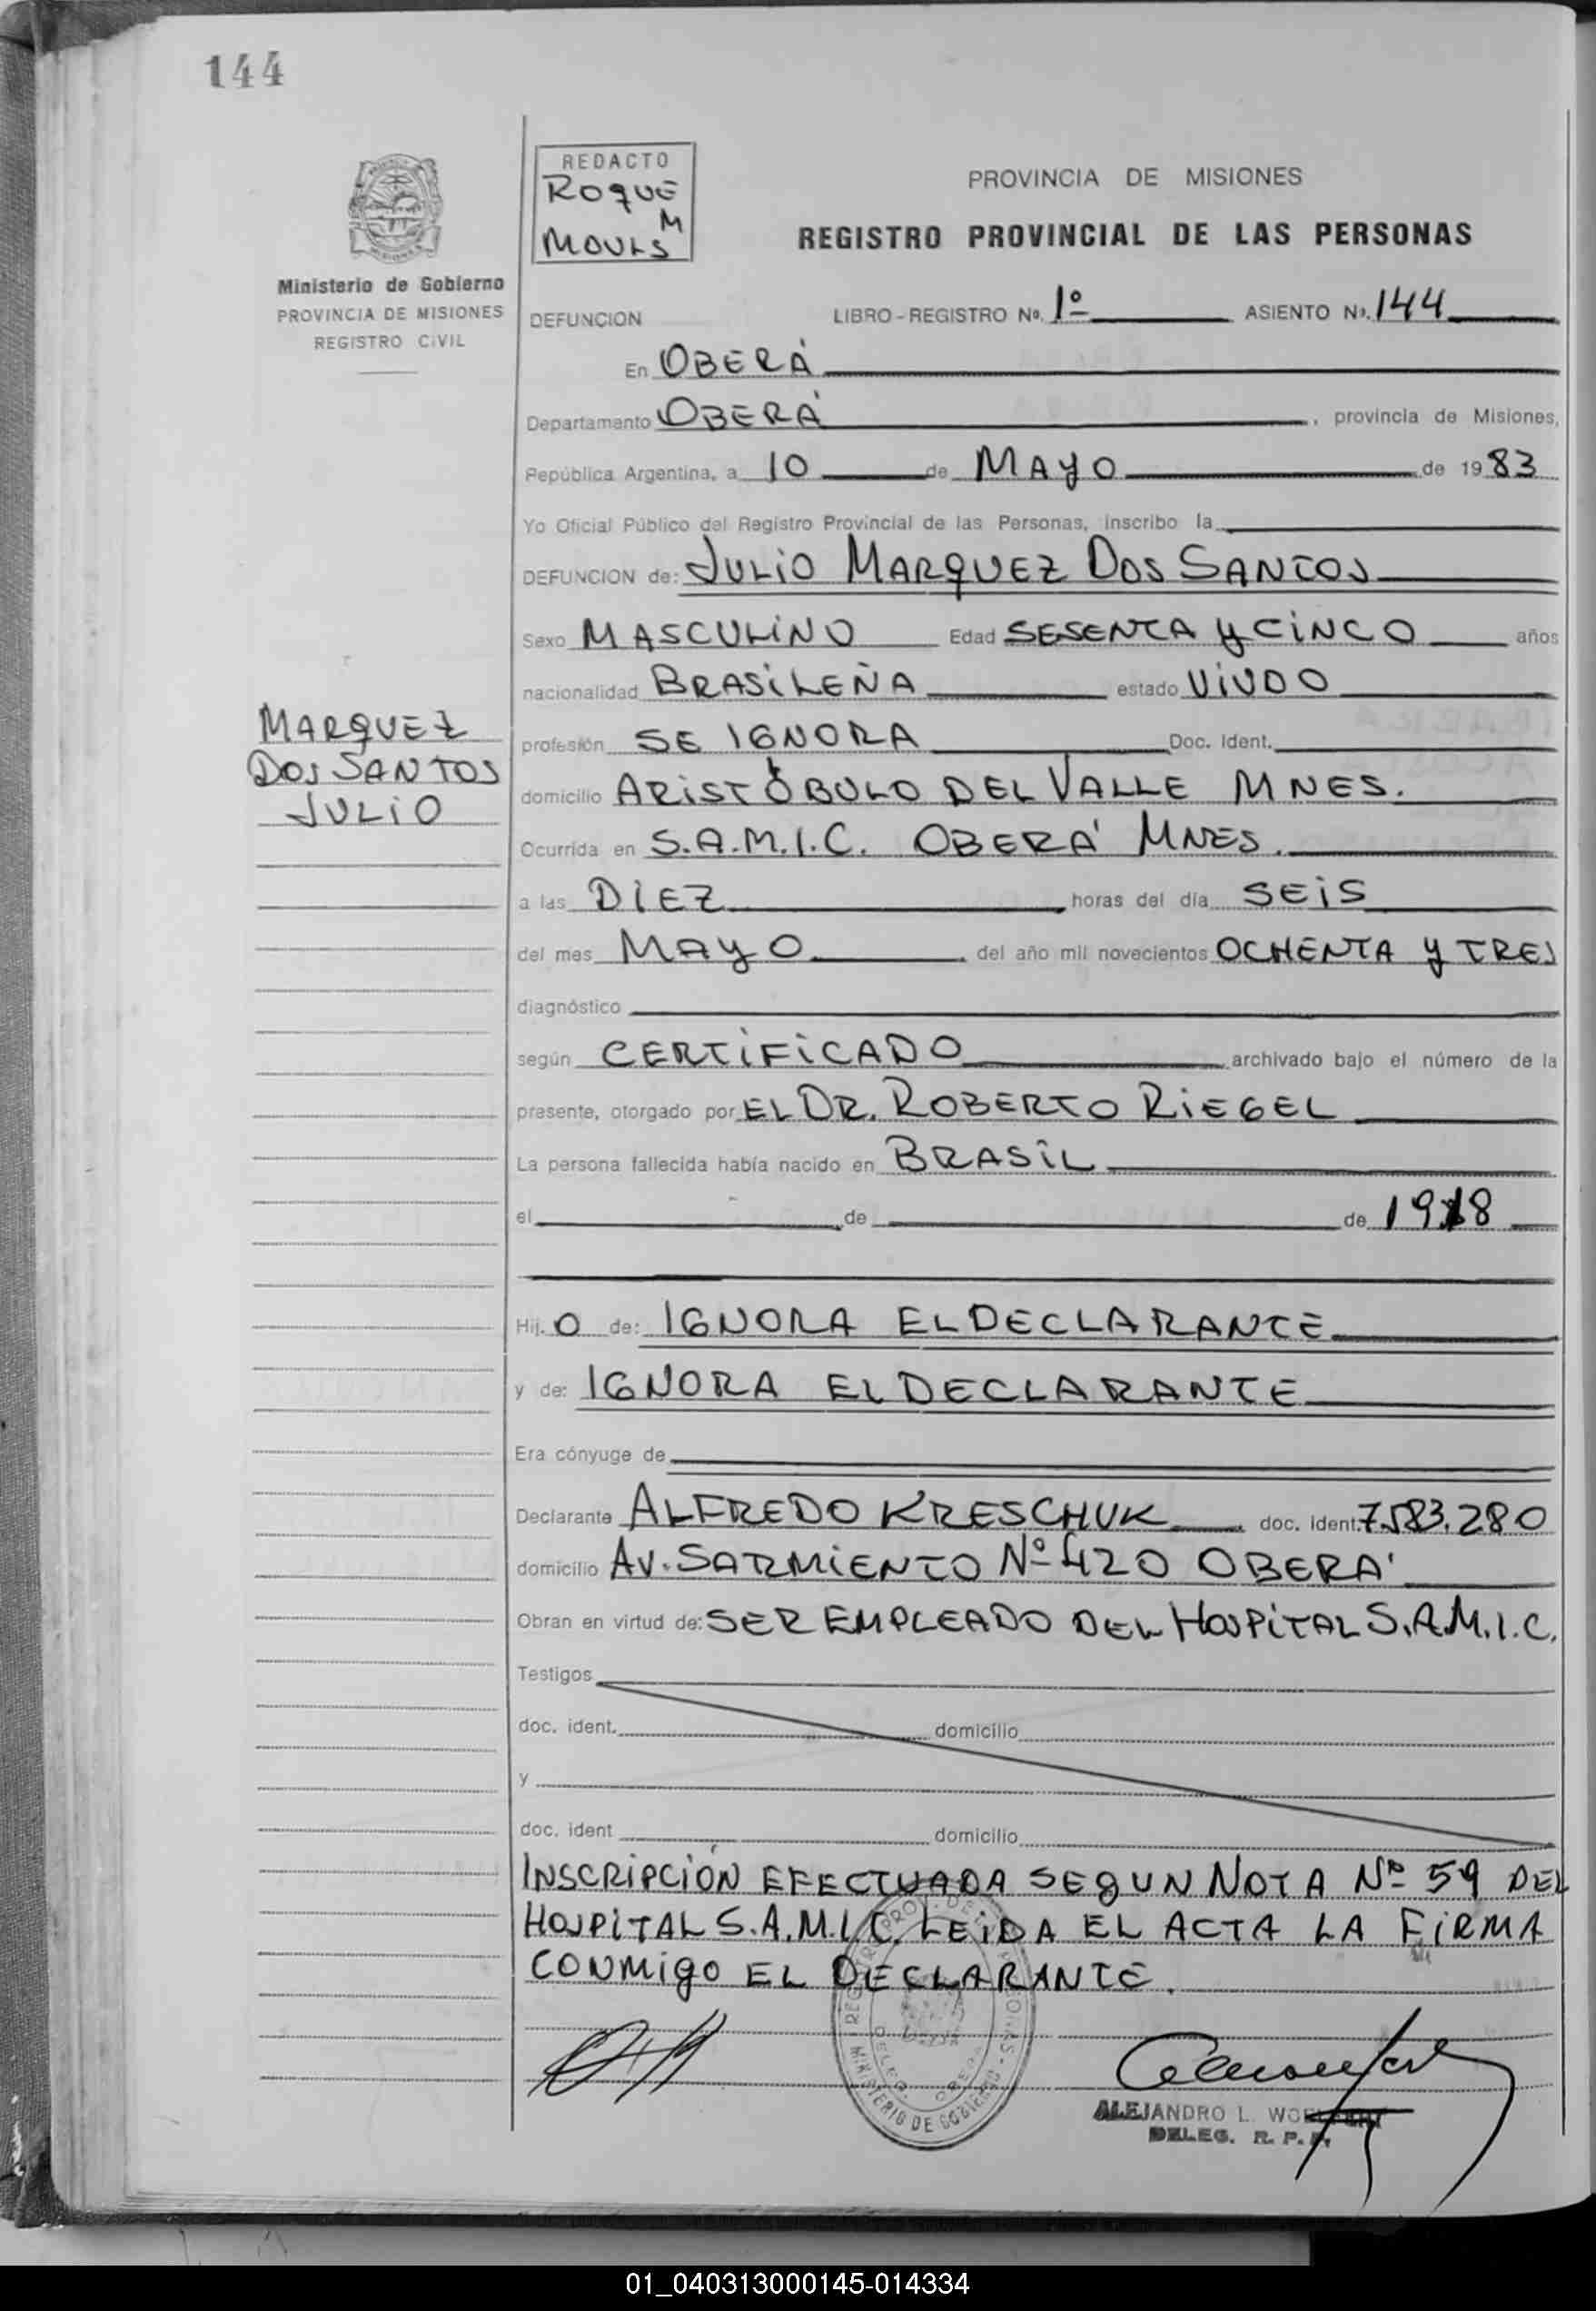 144
REDACTO
ROQUE
M
MOULS
Ministerio de Gobierno
PROVINCIA DE MISIONES
REGISTRO CIVIL
PROVINCIA DE MISIONES
REGISTRO PROVINCIAL DE LAS PERSONAS
DEFUNCION LIBRO - REGISTRO Nº. 1º ASIENTO Nº. 144
En OBERÁ
Departamento OBERÁ, provincia de Misiones,
República Argentina, a 10 de MAYO de 1983
Yo Oficial Público del Registro Provincial de las Personas, inscribo la
DEFUNCION de: JULIO MARQUEZ DOS SANTOS
Sexo MASCULINO Edad SESENTA Y CINCO años
nacionalidad BRASILEÑA estado VIUDO
MARQUEZ
DOS SANTOS
JULIO
profesión SE IGNORA Doc. Ident.
domicilio ARISTÓBULO DEL VALLE MNES.
Ocurrida en S.A.M.I.C. OBERÁ MNES.
a las DIEZ horas del día SEIS
del mes MAYO del año mil novecientos OCHENTA Y TRES
diagnóstico
según CERTIFICADO archivado bajo el número de la
presente, otorgado por EL DR. ROBERTO RIEGEL
La persona fallecida había nacido en BRASIL
el de de 1918
Hij.O de: IGNORA EL DECLARANTE
y de: IGNORA EL DECLARANTE
Era cónyuge de
Declarante ALFREDO KRESCHUK doc. ident. 7.583.280
domicilio AV. SARMIENTO Nº 420 OBERÁ
Obran en virtud de: SER EMPLEADO DEL HOSPITAL S.A.M.I.C.
Testigos
doc. ident. domicilio
y
doc. ident domicilio
INSCRIPCIÓN EFECTUADA SEGUN NOTA Nº 59 DEL
HOSPITAL S.A.M.I.C. LEIDA EL ACTA LA FIRMA
CONMIGO EL DECLARANTE.
MINISTERIO DE GOBIERNO
ALEJANDRO L.
DELEG. R. P. P.
01_040313000145-014334